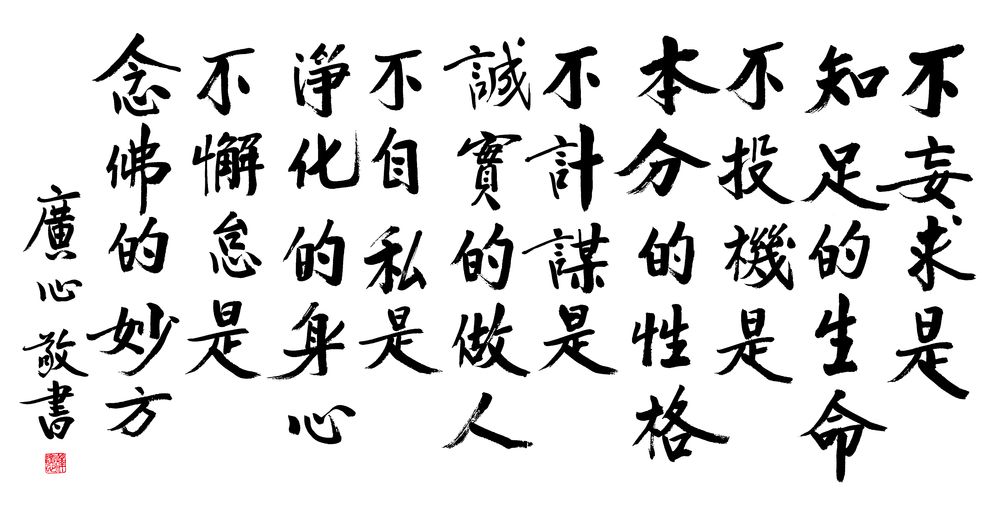 不妄求是
知足的生命
不投機是
本分的性格
不計謀是
誠實的做人
不自私是
淨化的身心
不懈怠是
念佛的妙方
廣心敬書